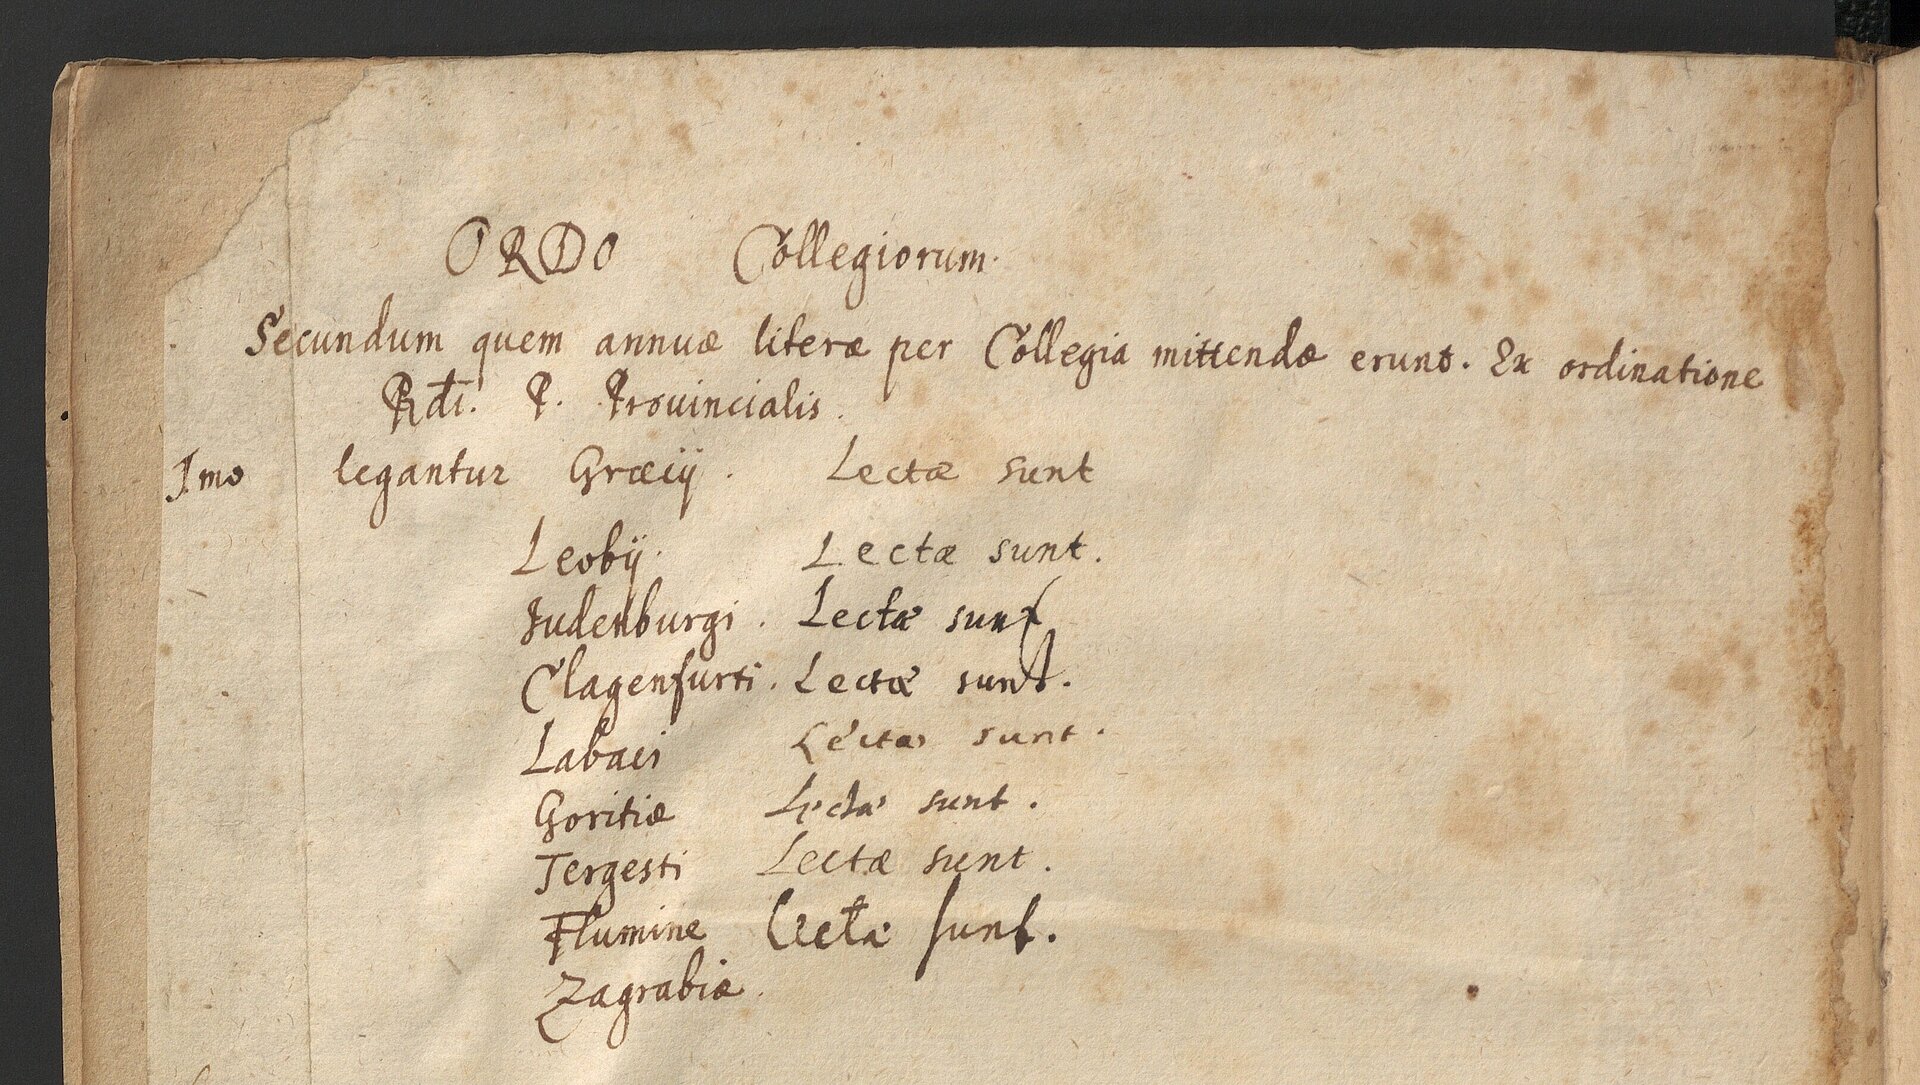 ORDO Collegiorum.
Secundum quem annuæ literæ per Collegia mittendæ erunt. Ex ordinatione
Rdi. P. Prouincialis.
I.mo legantur Græcij. Lectæ sunt
Leobij. Lectæ sunt.
Judenburgi. Lectæ sunt
Clagenfurti. Lectæ sunt.
Labaci Lectæ sunt.
Goritiæ Lectæ sunt.
Tergesti Lectæ sunt.
Flumine Lectæ sunt.
Zagrabiæ.